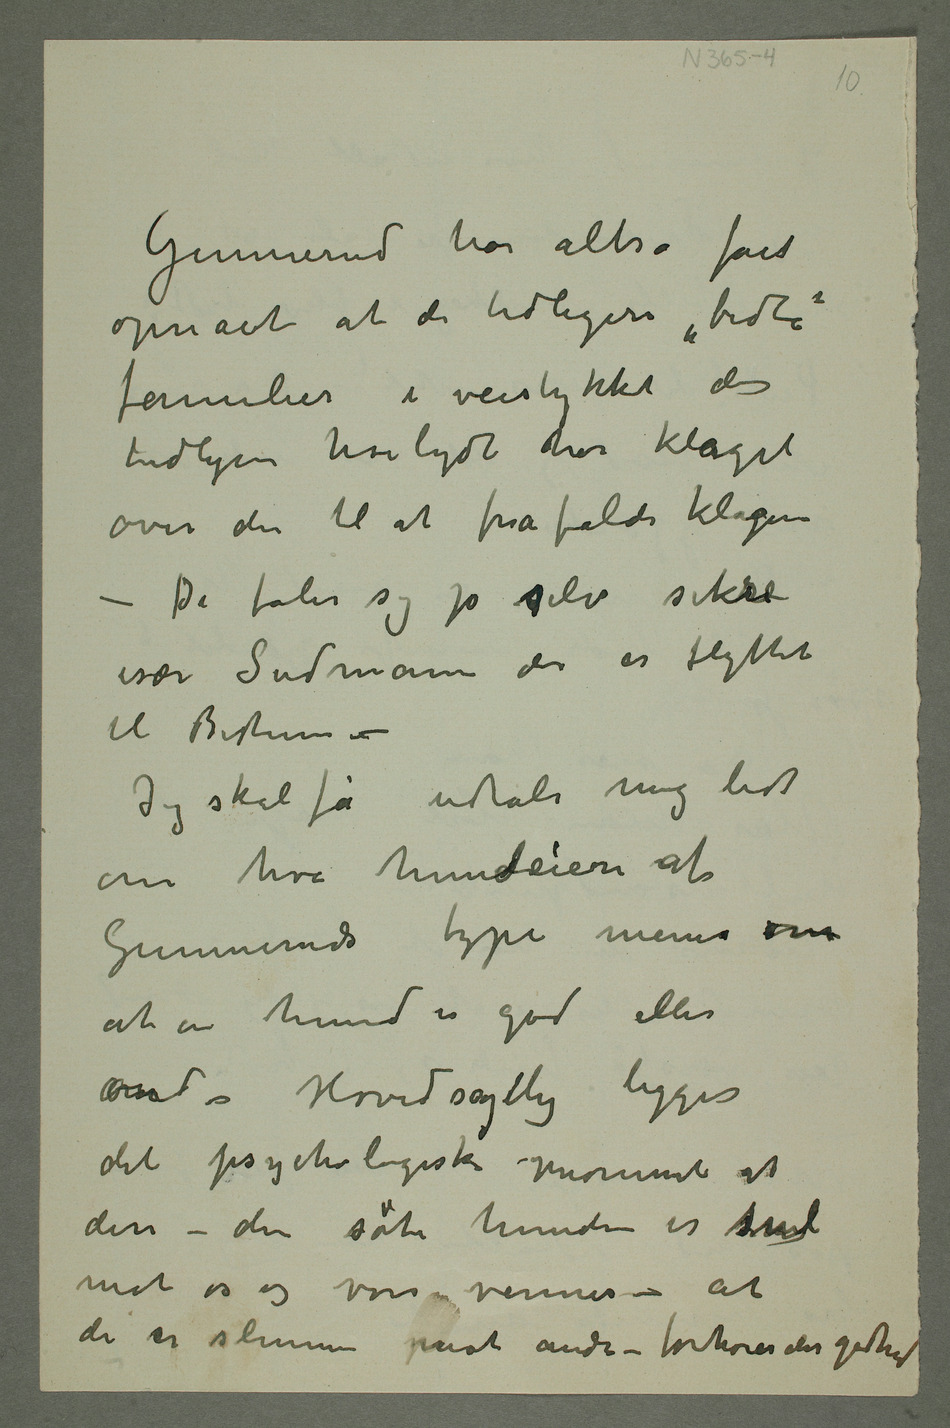 N 365-4
10
Gunnerud har altså faet
opnået at de tidligere „bidte“
familier i veistykket der
tidligere heilydt har klaget
over den til at frafalde klagen
— De føler sig jo selv sikre
især Sudmann der er flyttet
til Bestum —
Jeg skal få udtale mig lidt
om hva hundeiere af
Gunneruds type mener om
at en hund er god eller
ond – Hovedsaglig ligger
det psychologiske moment at
den – den söte hunden er snil
mot os og vore venner – at
de er slemme mot andre – forhøier des godhed